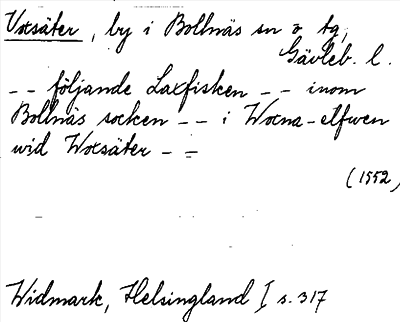 Voxsäter, by i Bollnäs sn o tg,
Gävleb. l.
-- följande Laxfisken -- inom
Bollnäs socken -- i Woxna-elfwen
wid Woxsäter --
(1552)
Widmark, Helsingland I s. 317